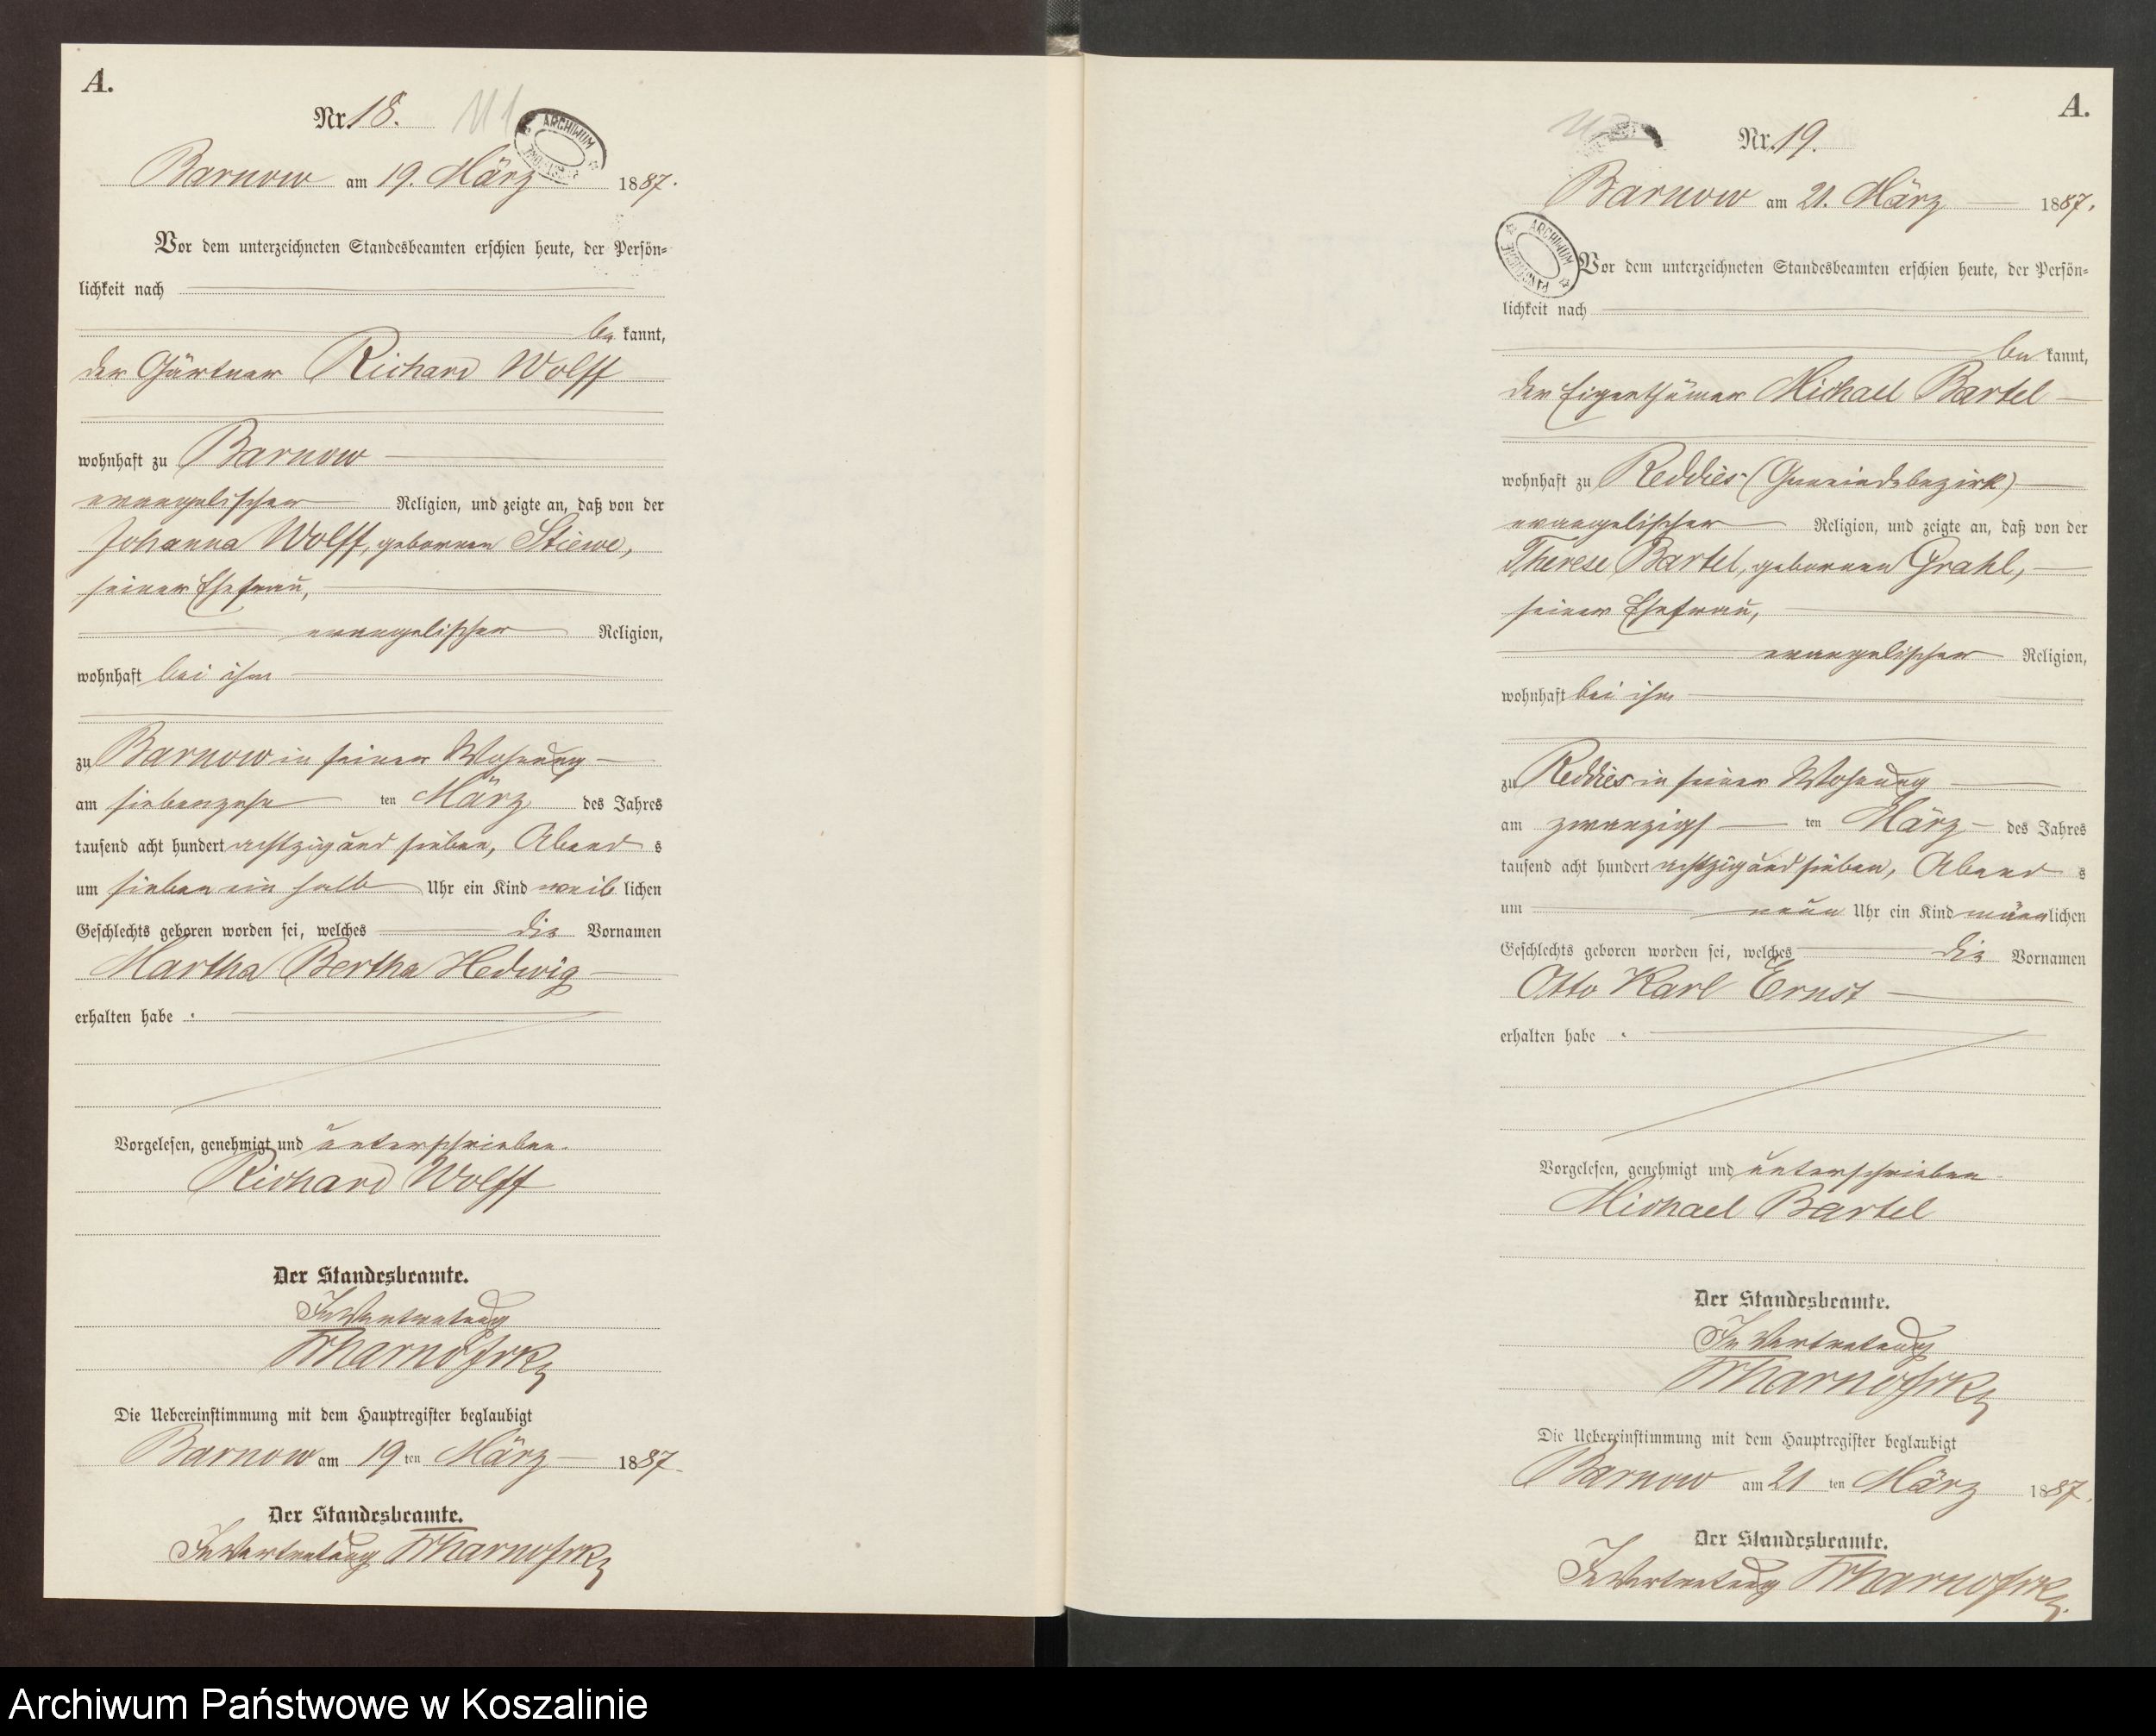 A.
Nr. 18.
ARCHIWUM
Barnow am 19. März 1887.
Vor dem unterzeichneten Standesbeamten erschien heute, der Persön=
lichkeit nach
be kannt,
der Gärtner Richard Wolff
wohnhaft zu Barnow
evangelischer Religion, und zeigte an, daß von der
Johanna Wolff, geborenen Stiewe,
seiner Ehefrau,
evangelischer Religion,
wohnhaft bei ihm
zu Barnow in seiner Wohnung
am siebenzehn ten März des Jahres
tausend acht hundert achtzig und sieben, Abend s
um sieben ein halb Uhr ein Kind weib lichen
Geschlechts geboren worden sei, welches die Vornamen
Martha Bertha Hedwig
erhalten habe .
Vorgelesen, genehmigt und unterschrieben.
Richard Wolff
Der Standesbeamte.
In Vertretung
Die Uebereinstimmung mit dem Hauptregister beglaubigt
Barnow am 19 ten März 1887.
Der Standesbeamte.
In Vertretung
A.
Nr. 19.
Barnow am 21. März 1887.
ARCHIWUM
Vor dem unterzeichneten Standesbeamten erschien heute, der Persön=
lichkeit nach
be kannt,
der Eigenthümer Michael Bartel
wohnhaft zu Reddies (Gemeindebezirk)
evangelischer Religion, und zeigte an, daß von der
Therese Bartel, geborenen Grahl,
seiner Ehefrau,
evangelischer Religion,
wohnhaft bei ihm
zu Reddies in seiner Wohnung
am zwanzigs ten März des Jahres
tausend acht hundert achtzig und sieben, Abend s
um neun Uhr ein Kind männlichen
Geschlechts geboren worden sei, welches die Vornamen
Otto Karl Ernst
erhalten habe .
Vorgelesen, genehmigt und unterschrieben.
Michael Bartel
Der Standesbeamte.
In Vertretung
Die Uebereinstimmung mit dem Hauptregister beglaubigt
Barnow am 21 ten März 1887.
Der Standesbeamte.
In Vertretung
Archiwum Państwowe w Koszalinie